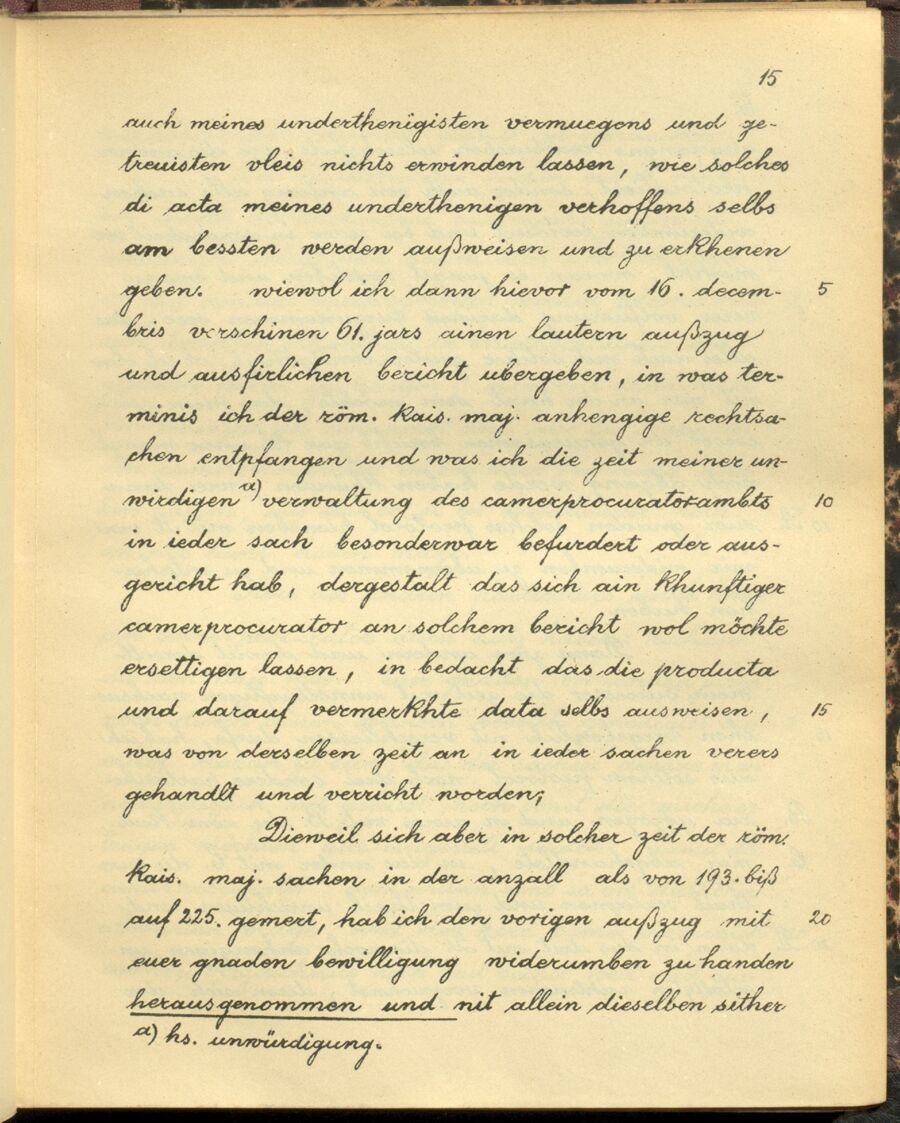 15
auch meines underthenigisten vermuegens und ge-
treuisten vleis nichts erwinden lassen, wie solches
di acta meines underthenigen verhoffens selbs
am bessten werden außweisen und zu erkhenen
geben. wiewol ich dann hievor vom 16. decem- 5
bris verschinen 61. jars ainen lautern außzug
und ausfirlichen bericht ubergeben, in was ter-
minis ich der röm. kais. maj. anhengige rechtsa-
chen entpfangen und was ich die zeit meiner un-
wirdigen a) verwaltung des camerprocuratorambts 10
in ieder sach besonderwar befurdert oder aus-
gericht hab, dergestalt das sich ain khunftiger
camerprocurator an solchem bericht wol möchte
ersettigen lassen, in bedacht das die producta
und darauf vermerkhte data selbs ausweisen, 15
was von derselben zeit an in ieder sachen verers
gehandlt und verricht worden;
Dieweil sich aber in solcher zeit der röm.
kais. maj. sachen in der anzall als von 193. biß
auf 225. gemert, hab ich den vorigen außzug mit 20
euer gnaden bewilligung widerumben zu handen
herausgenommen und nit allein dieselben sither
a) hs. unwürdigung.